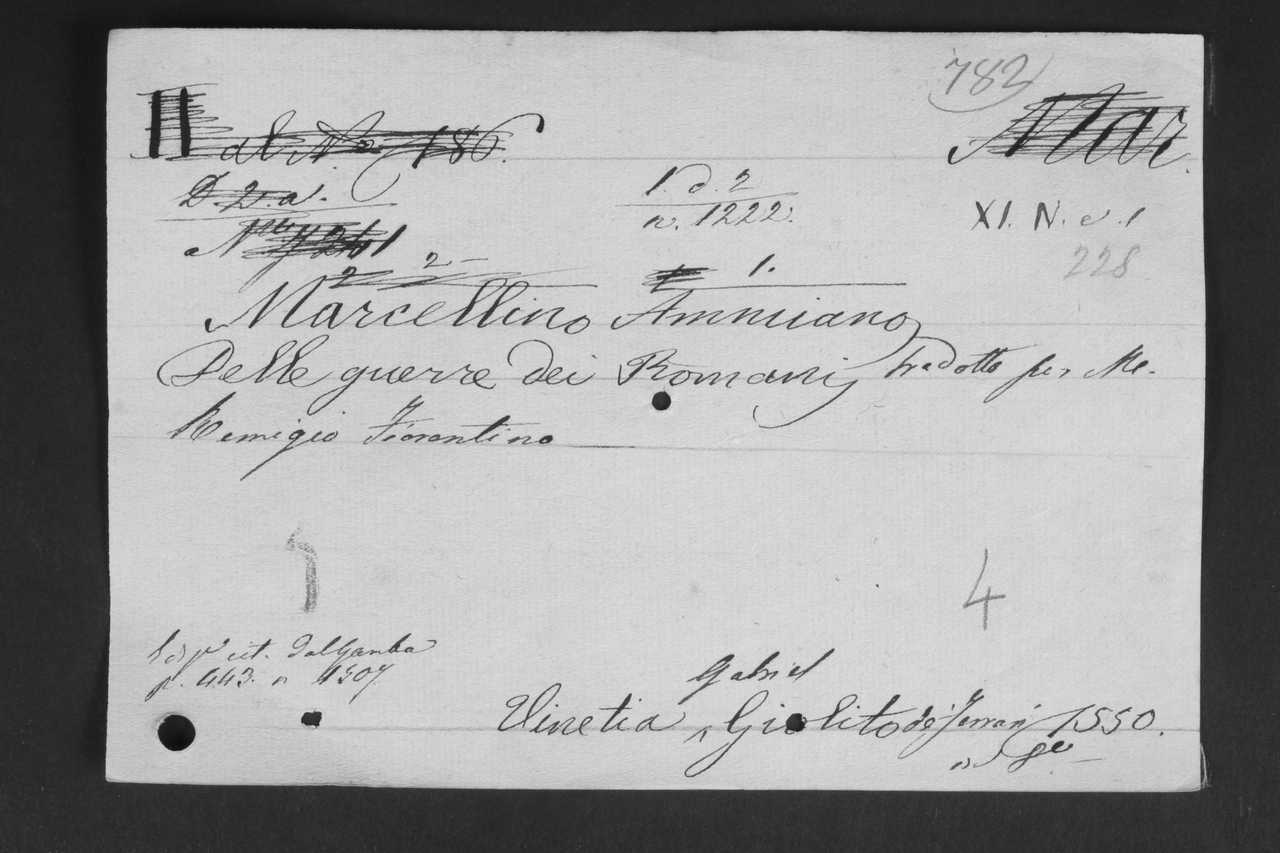 782
al No 186. Mar.
D. 2. a. 1. d. 2
n. 1222. XI. N. e. 1
228
2 2 1.
Marcellino Ammiano
Delle guerre dei Romani tradotto per Me.
Remigio Fiorentino
4
cit. dal Gamba
p. 443. n 1507.
Gabriel
Vinetia, Giolito de' Ferrari 1550.
in 8o